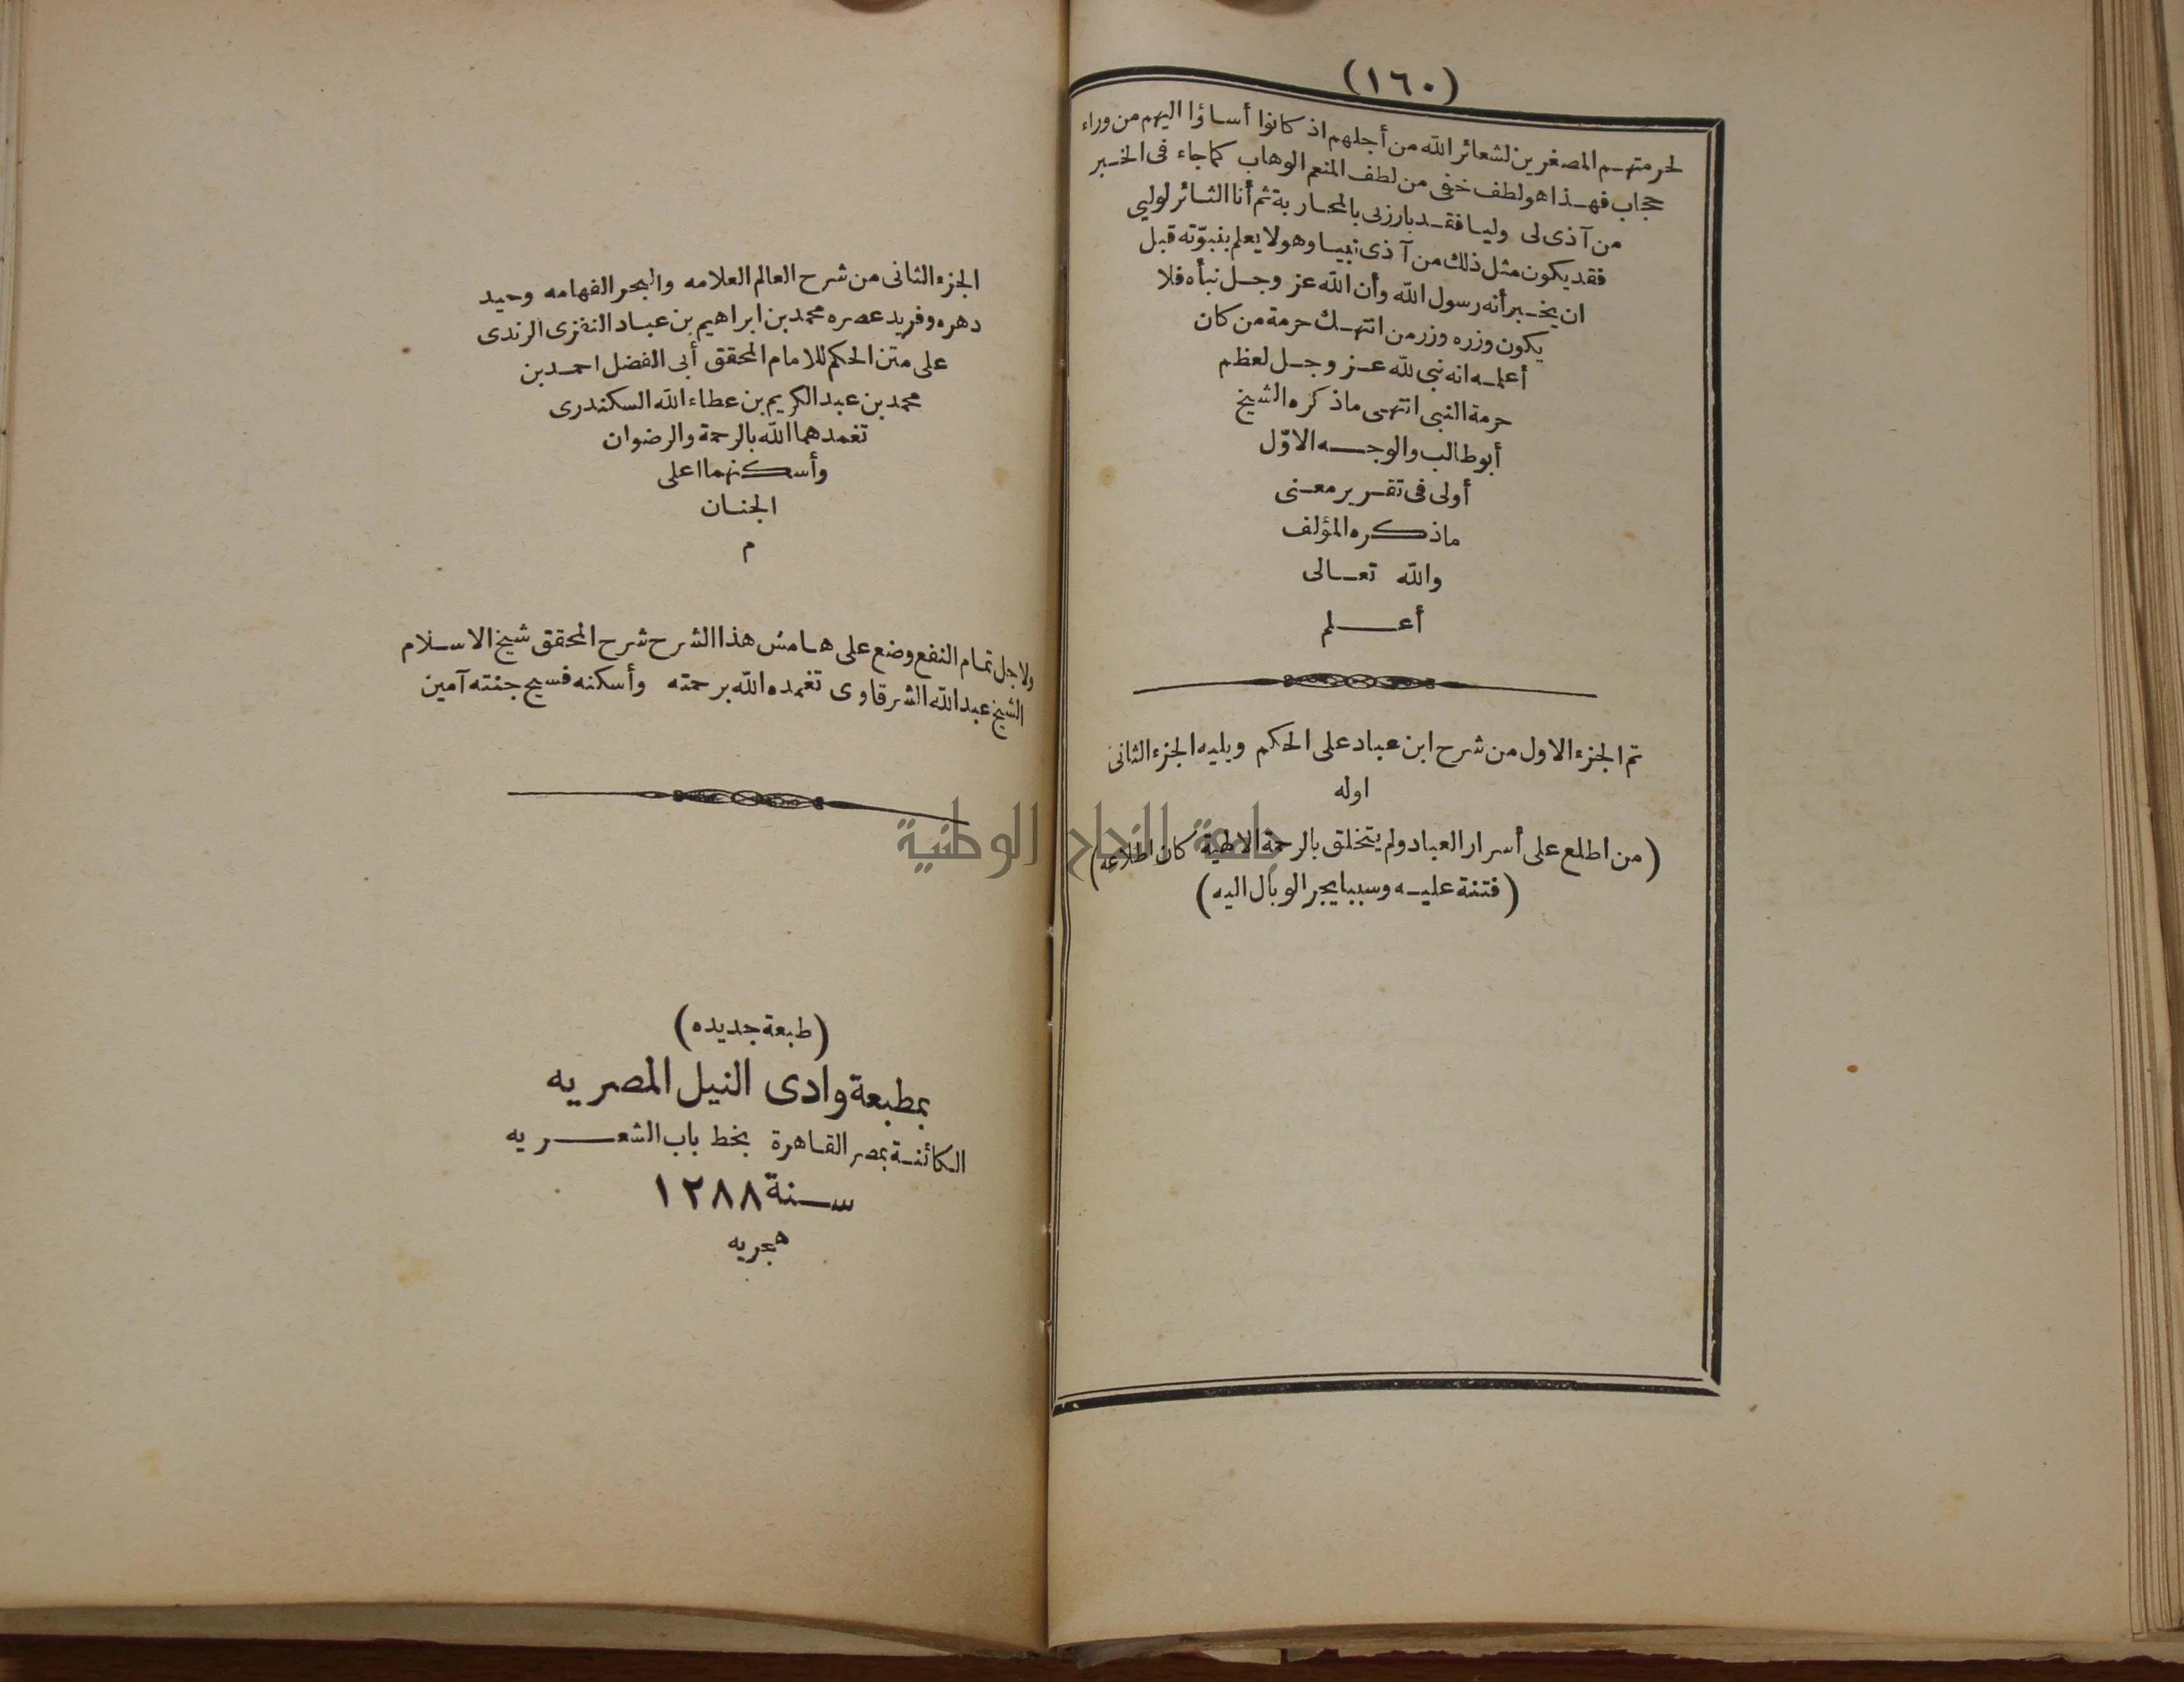 (١٦٠)
لحرمتهم المصغرين لشعائر الله من أجلهم اذ كانوا أساؤا اليهم من وراء
حجاب فهذا هو لطف خفى من لطف المنعم الوهاب كما جاء فى الخبر
من آذى لى وليا فقد بارزنى بالمحاربة ثم أنا الثائر لوليى
فقد يكون مثل ذلك من آذى نبيا وهو لا يعلم بنبوّته قبل
ان يخبر أنه رسول الله وأن الله عز وجل نبأه فلا
يكون وزره وزر من انتهك حرمة من كان
أعلمه انه نبى لله عز وجل لعظم
حرمة النبى انتهى ما ذكره الشيخ
أبو طالب والوجه الاوّل
أولى فى تقرير معنى
ما ذكره المؤلف
والله تعالى
أعلم
تم الجزء الاول من شرح ابن عباد على الحكم ويليه الجزء الثانى
اوله
(من اطلع على أسرار العباد ولم يتخلق بالرحمة الالهية كان اطلاعه)
(فتنة عليه وسببا يجر الوبال اليه)
الجزء الثانى من شرح العالم العلامه والبحر الفهامه وحيد
دهره وفريد عصره محمد بن ابراهيم بن عباد النفزى الرندى
على متن الحكم للامام المحقق أبى الفضل احمد بن
محمد بن عبد الكريم بن عطاء الله السكندرى
تغمدهما الله بالرحمة والرضوان
وأسكنهما اعلى
الجنان
م
ولاجل تمام النفع وضع على هامش هذا الشرح شرح المحقق شيخ الاسلام
الشيخ عبد الله الشرقاوى تغمده الله برحمته وأسكنه فسيح جنته آمين
(طبعة جديده)
بمطبعة وادى النيل المصريه
الكائنة بمصر القاهرة بخط باب الشعريه
سنة ١٢٨٨
هجريه
جامعة النجاح الوطنية